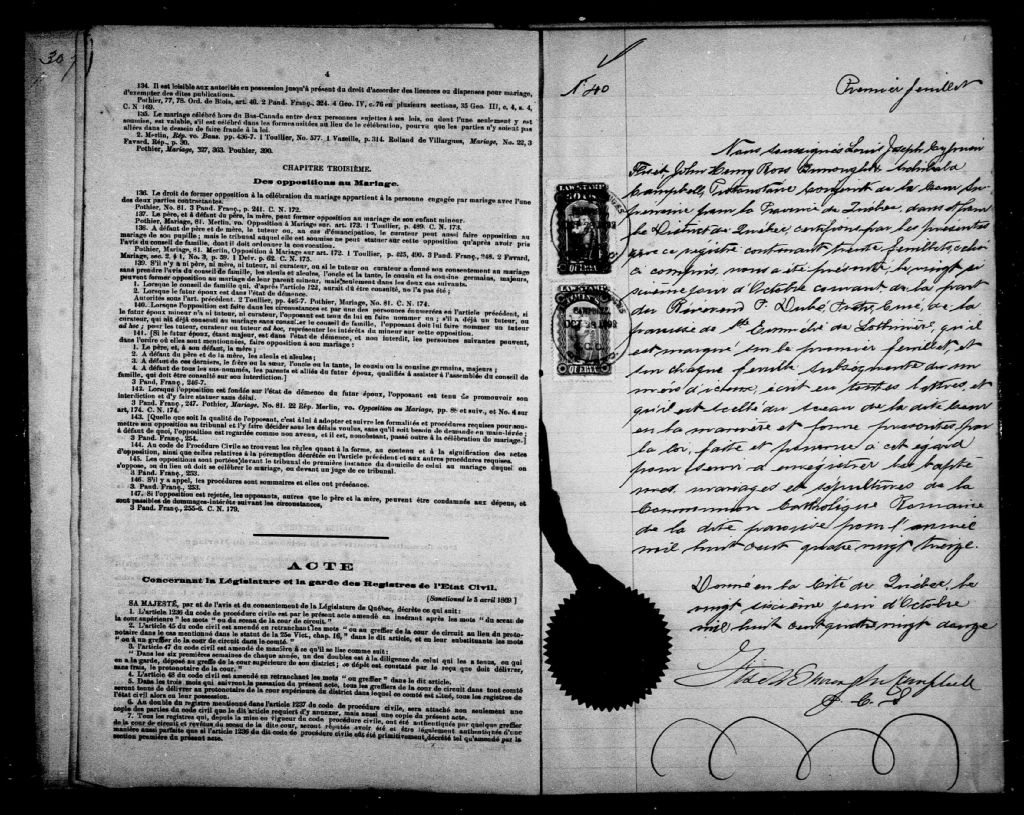 307
4
134. Il est loisible aux autorités en possession jusqu'à présent du droit d'accorder des licences ou dispenses pour mariage,
d'exempter des dites publications.
Pothier, 77, 78. Ord. de Blois, art. 40. 2 Pand. Franç. 324. 4 Geo. IV, c. 76 en plusieurs sections, 35 Geo. III, c. 4, s. 4,
C. N 169.
135. Le mariage célébré hors du Bas-Canada entre deux personnes sujettes à ses lois, ou dont l'une seulement y est
soumise, est valable, s'il est célébré dans les formes usitées au lieu de la célébration, pourvu que les parties n'y soient pas
allées dans le dessein de faire fraude à la loi.
2. Merlin, Rép. vo. Bans. pp. 436-7. 1 Toullier, No. 577. 1 Vazeille, p. 314. Rolland de Villargues, Mariage, No. 22, 3
Favard. Rép., p. 30.
Pothier, Mariage, 327, 363. Pouhier, 390.
CHAPITRE TROISIÈME.
Des oppositions au Mariage.
136. Le droit de former opposition à la célébration du mariage appartient à la personne engagée par mariage avec l'une
des deux parties contractantes.
Pothier, No. 81. 3 Pand. Franç., p. 241. C. N. 172.
137. Le père, et à défaut du père, la mère, peut former opposition au mariage de son enfant mineur.
Pothier, Mariage, 81. Merlin, vo. Opposition à Mariage sur art. 173. 1 Toullier, p. 489. C. N. 173.
138. A défaut de père et de mère, le tuteur ou, au cas d'émancipation, le curateur peut aussi faire opposition au
mariage de son pupille; mais le tribunal auquel elle est soumise ne peut statuer sur cette opposition qu'après avoir pris
l'avis du conseil de famille, dont il doit ordonner la convocation.
Pothier, Mariage, 81. Merlin, Opposition à Mariage sur art. 172. 1 Toullier, p. 425, 490. 3 Pand. Franç., 248. 2 Favard,
Mariage, sec. 2, § 1, No. 3, p. 59. 1 Delv. p. 62. C. N. 175.
139. S'il n'y a ni père, ni mère, ni tuteur, ni curateur, ou si le tuteur ou curateur a donné son consentement au mariage
sans prendre l'avis du conseil de famille, les aïeuls et aïeules, l'oncle et la tante, le cousin et la cousine germains, majeurs,
peuvent former opposition au mariage de leur parent mineur, mais seulement dans les deux cas suivants.
1. Lorsque le conseil de famille qui, d'après l'article 122, aurait dû être consulté, ne l'a pas été;
2. Lorsque le futur époux est dans l'état de démence.
Autorités sous l'art. précédent. 2 Toullier, pp. 446-7. Pothier, Mariage, No. 81. C. N. 174.
140. Lorsque l'opposition est faite dans les circonstances et par une des personnes énoncées en l'article précédent, si
le futur époux mineur n'a ni tuteur, ni curateur, l'opposant est tenu de lui en faire nommer un; s'il a déjà un tuteur, ou
curateur, qui ait déjà consenti au mariage sans consulter le conseil de famille, l'opposant doit lui faire nommer un tuteur
ad hoc; pour les tuteur, curateur ou tuteur ad hoc, représenter les intérêts du mineur sur cette opposition.
141. [Si le futur époux, étant majeur, est dans l'état de démence, et non interdit, les personnes suivantes peuvent,
dans l'ordre où elles sont mentionnées, faire opposition à son mariage:
1. Le père, et, à son défaut, la mère;
2. A défaut du père et de la mère, les aïeuls et aïeules;
3. A défaut de ces derniers, le frère ou la sœur, l'oncle et la tante, le cousin ou la cousine germains, majeurs;
4. A défaut de tous les sus-nommés, les parents et alliés du futur époux, qualifiés à assister à l'assemblée du conseil de
famille, qui doit être consulté sur son interdiction.]
3 Pand. Franç., 246-7.
142. Lorsque l'opposition est fondée sur l'état de démence du futur époux, l'opposant est tenu de promouvoir son
interdiction et d'y faire statuer sans délai.
3 Pand. Franç., 247. Pothier, Mariage, No. 81. 22 Rép. Merlin, vo. Opposition au Mariage, pp. 88 et suiv., et No. 4 sur
art, 174. C. N. 174.
143. [Quelle que soit la qualité de l'opposant, c'est à lui à adopter et suivre les formalités et procédures requises pour sou-
mettre son opposition au tribunal et l'y faire décider sans les délais voulus, sans qu'il soit besoin de demande en main-levée;
à défaut de quoi, l'opposition est regardée comme non avenu, et il est, nonobstant, passé outre à la célébration du mariage.]
3 Pand. Franç., 254.
144. Au code de Procédure Civile se trouvent les règles quant à la forme, au contenu et à la signification des actes
d'opposition, ainsi que celles relatives à la péremption décrétée en l'article précédent et aux autres procédures requises.
145. Les oppositions sont portées devant le tribunal de première instance du domicile de celui au mariage duquel on
s'oppose, ou du lieu où doit se célébrer le mariage, ou devant un juge de ce tribunal.
3 Pand. Franç., 253.
146. S'il y a appel, les procédures sont sommaires et elles ont préséance.
3. Pand. Franç., 253.
147. Si l'opposition est rejetée, les opposants, autres que le père et la mère, peuvent être condamnés aux dépens, et
sont passibles de dommages-intérêts suivant les circonstances,
3 Pand. Franç., 255-6. C. N. 179.
ACTE
Concernant la Législature et la garde des Registres de l'Etat Civil.
[Sanctionné le 5 avril 1869.]
SA MAJESTÉ, par et de l'avis et du consentement de la Législature de Québec, décrète ce qui suit:
1. L'article 1236 du code de procédure civile est par le présent acte amendé en insérant après les mots "du sceau de
la cour supérieure" les mots "ou du sceau de la cour de circuit."
2. L'article 45 du code civil est amendé en retranchant les mots "ou au greffier de la cour de circuit au lieu du proto-
notaire dans le cas mentionné dans le statut de la 25e Vict., chap. 16," dans le dit article, et en leur substituant les mots
"ou à un greffier de la cour de circuit dans le comté."
3. L'article 47 du code civil est amendé de manière à ce qu'il se lise comme suit:
"Dans les six premières semaines de chaque année, un des doubles est à la diligence de celui qui les a tenus, ou qui
en a la garde, déposé au greffe de la cour supérieure de son district; ce dépôt est constaté par le reçu que doit délivrer,
sans frais, le protonotaire de la cour."
4. L'article 48 du code civil est amendé en retranchant les mots "ou greffier" dans le dit article.
5. Dans les trois mois qui suivront la passation du présent acte, tous les greffiers de la cour de circuit dans tout comté
seront tenus de délivrer au protonotaire de la cour supérieure du district dans lequel ce comté est situé, tous les registres de
l'état civil alors en leur possession.
6. Au double du registre mentionné dans l'article 1237 du code de procédure civile, sera attaché non seulement une
copie des parties du code civil que le dit article requiert d'y annexer, mais aussi une copie du présent acte.
7. Tous les registres qui, depuis la mise en vigueur du code procédure civile, ont été authentiqués par quelque greffier
de la cour de circuit et revêtus du sceau de la dite cour, seront réputés avoir été et être légalement authentiqués d'une
manière aussi parfaite que si l'article 1236 du dit code de procédure civile eût été primitivement décrété tel qu'amendé par la
section première du présent acte.
No 40
Premier feuillet
LAW STAMP
QUEBEC
LAW STAMP
CAMPBELL
OCT 26 1892
QUEBEC
Nous soussignés Louis Joseph Cyprien
Fiset, John Henry Ross Burroughs & Archibald
Campbell, Protonotaire Conjoint de la Cour Su-
périeure pour la Province de Québec, dans & pour
le District de Québec, certifions par les présentes
que ce registre contenant trente feuillets, celui-
ci compris, nous a été présenté, ce vingt si-
xième jour d'Octobre courant de la part
du Révérend P. Dubé, Ptre, Curé, de la
paroisse de Ste Emmélie de Lotbinière, qu'il
est marqué sur le premier feuillet, et
sur chaque feuillet subséquent du nu-
méro d'icelui, écrit en toutes lettres, et
qu'il est scellé du sceau de la dite Cour
en la manière et forme prescrites par
la loi, faite et pourvue à cet égard
pour servir à enregistrer les baptê-
mes, mariages et sépultures de la
Communion Catholique Romaine
de la dite paroisse pour l'année
mil huit cent quatre vingt treize.
Donné en la Cité de Québec, le
vingt sixième jour d'Octobre
mil huit cent quatre vingt douze
Fiset Burroughs Campbell
P. C. S